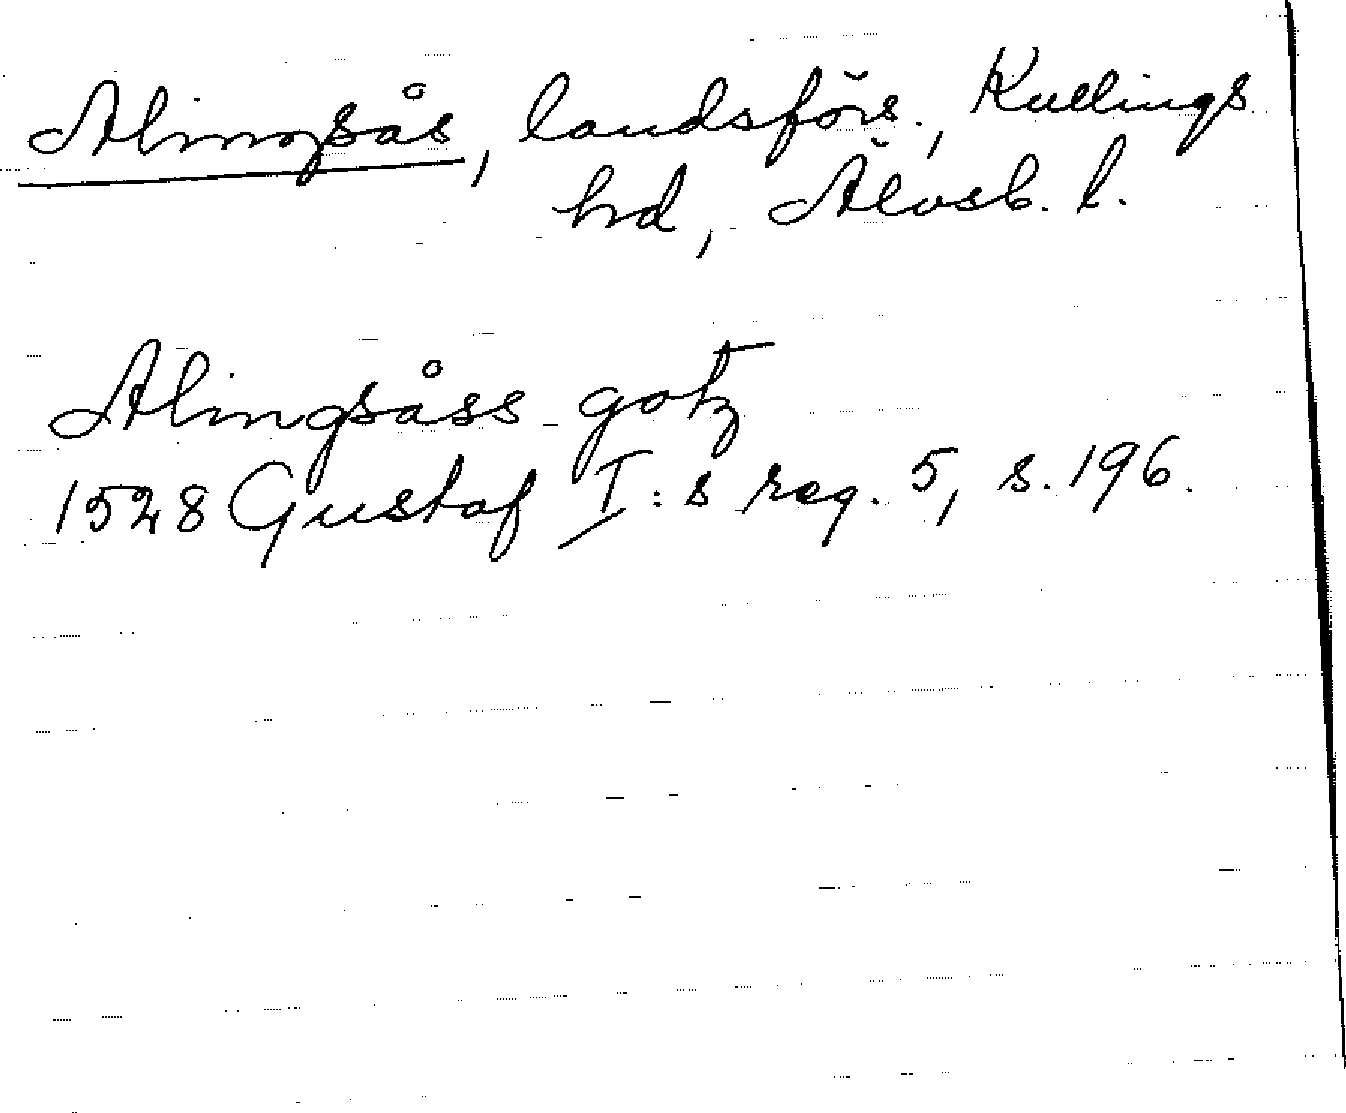 Alingsås, landsförs., Kullings
hd, Älvsb. l.
Alingsåss gotz
1528 Gustaf I:s reg. 5, s. 196.